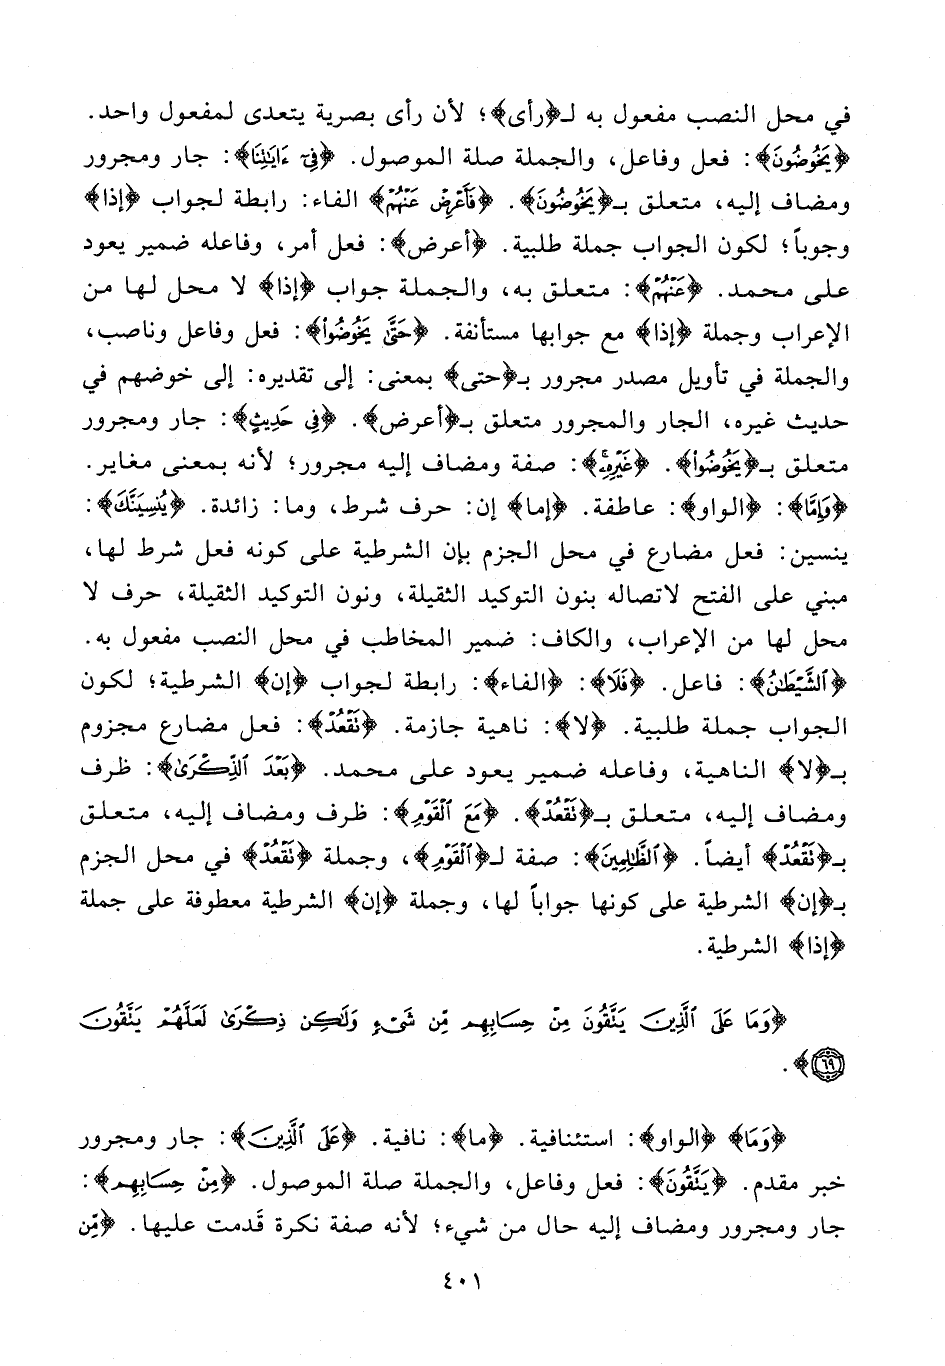 في محل النصب مفعول به لـ﴿رأى﴾؛ لأن رأى بصرية يتعدى لمفعول واحد.
﴿يَخُوضُونَ﴾: فعل وفاعل، والجملة صلة الموصول. ﴿فِىٓ ءَايَٰتِنَا﴾: جار ومجرور
ومضاف إليه، متعلق بـ﴿يَخُوضُونَ﴾. ﴿فَأَعْرِضْ عَنْهُمْ﴾ الفاء: رابطة لجواب ﴿إذا﴾
وجوباً؛ لكون الجواب جملة طلبية. ﴿أعرض﴾: فعل أمر، وفاعله ضمير يعود
على محمد. ﴿عَنْهُمْ﴾: متعلق به، والجملة جواب ﴿إذا﴾ لا محل لها من
الإعراب وجملة ﴿إذا﴾ مع جوابها مستأنفة. ﴿حَتَّىٰ يَخُوضُوا۟﴾: فعل وفاعل وناصب،
والجملة في تأويل مصدر مجرور بـ﴿حتى﴾ بمعنى: إلى تقديره: إلى خوضهم في
حديث غيره، الجار والمجرور متعلق بـ﴿أعرض﴾. ﴿فِى حَدِيثٍ﴾: جار ومجرور
متعلق بـ﴿يَخُوضُوا۟﴾. ﴿غَيْرِهِۦ﴾: صفة ومضاف إليه مجرور؛ لأنه بمعنى مغاير.
﴿وَإِمَّا﴾: ﴿الواو﴾: عاطفة. ﴿إما﴾ إن: حرف شرط، وما: زائدة. ﴿يُنسِيَنَّكَ﴾:
ينسين: فعل مضارع في محل الجزم بإن الشرطية على كونه فعل شرط لها،
مبني على الفتح لاتصاله بنون التوكيد الثقيلة، ونون التوكيد الثقيلة، حرف لا
محل لها من الإعراب، والكاف: ضمير المخاطب في محل النصب مفعول به.
﴿ٱلشَّيْطَٰنُ﴾: فاعل. ﴿فَلَا﴾: ﴿الفاء﴾: رابطة لجواب ﴿إن﴾ الشرطية؛ لكون
الجواب جملة طلبية. ﴿لا﴾: ناهية جازمة. ﴿نَقْعُدْ﴾: فعل مضارع مجزوم
بـ﴿لا﴾ الناهية، وفاعله ضمير يعود على محمد. ﴿بَعْدَ ٱلذِّكْرَىٰ﴾: ظرف
ومضاف إليه، متعلق بـ﴿نَقْعُدْ﴾. ﴿مَعَ ٱلْقَوْمِ﴾: ظرف ومضاف إليه، متعلق
بـ﴿نَقْعُدْ﴾ أيضاً. ﴿ٱلظَّٰلِمِينَ﴾: صفة لـ﴿ٱلْقَوْمِ﴾، وجملة ﴿نَقْعُدْ﴾ في محل الجزم
بـ﴿إن﴾ الشرطية على كونها جواباً لها، وجملة ﴿إن﴾ الشرطية معطوفة على جملة
﴿إذا﴾ الشرطية.
﴿وَمَا عَلَى ٱلَّذِينَ يَتَّقُونَ مِنْ حِسَابِهِم مِّن شَىْءٍ وَلَٰكِن ذِكْرَىٰ لَعَلَّهُمْ يَتَّقُونَ
٦٩﴾.
﴿وَمَا﴾ ﴿الواو﴾: استئنافية. ﴿ما﴾: نافية. ﴿عَلَى ٱلَّذِينَ﴾: جار ومجرور
خبر مقدم. ﴿يَتَّقُونَ﴾: فعل وفاعل، والجملة صلة الموصول. ﴿مِنْ حِسَابِهِم﴾:
جار ومجرور ومضاف إليه حال من شيء؛ لأنه صفة نكرة قَدمت عليها. ﴿مِّن
٤٠١